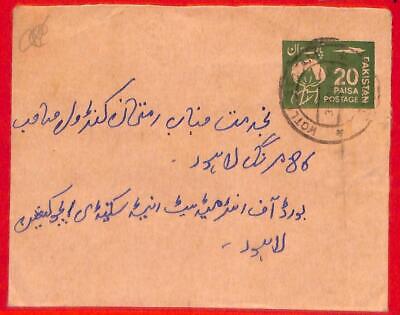 پاکستان
20
PAISA
POSTAGE
PAKISTAN
KOTL
بخدمت جناب کنٹرولر صاحب
86 مزنگ لاہور۔
بورڈ آف انٹرمیڈیٹ اینڈ سکینڈری ایجوکیشن
لاہور۔